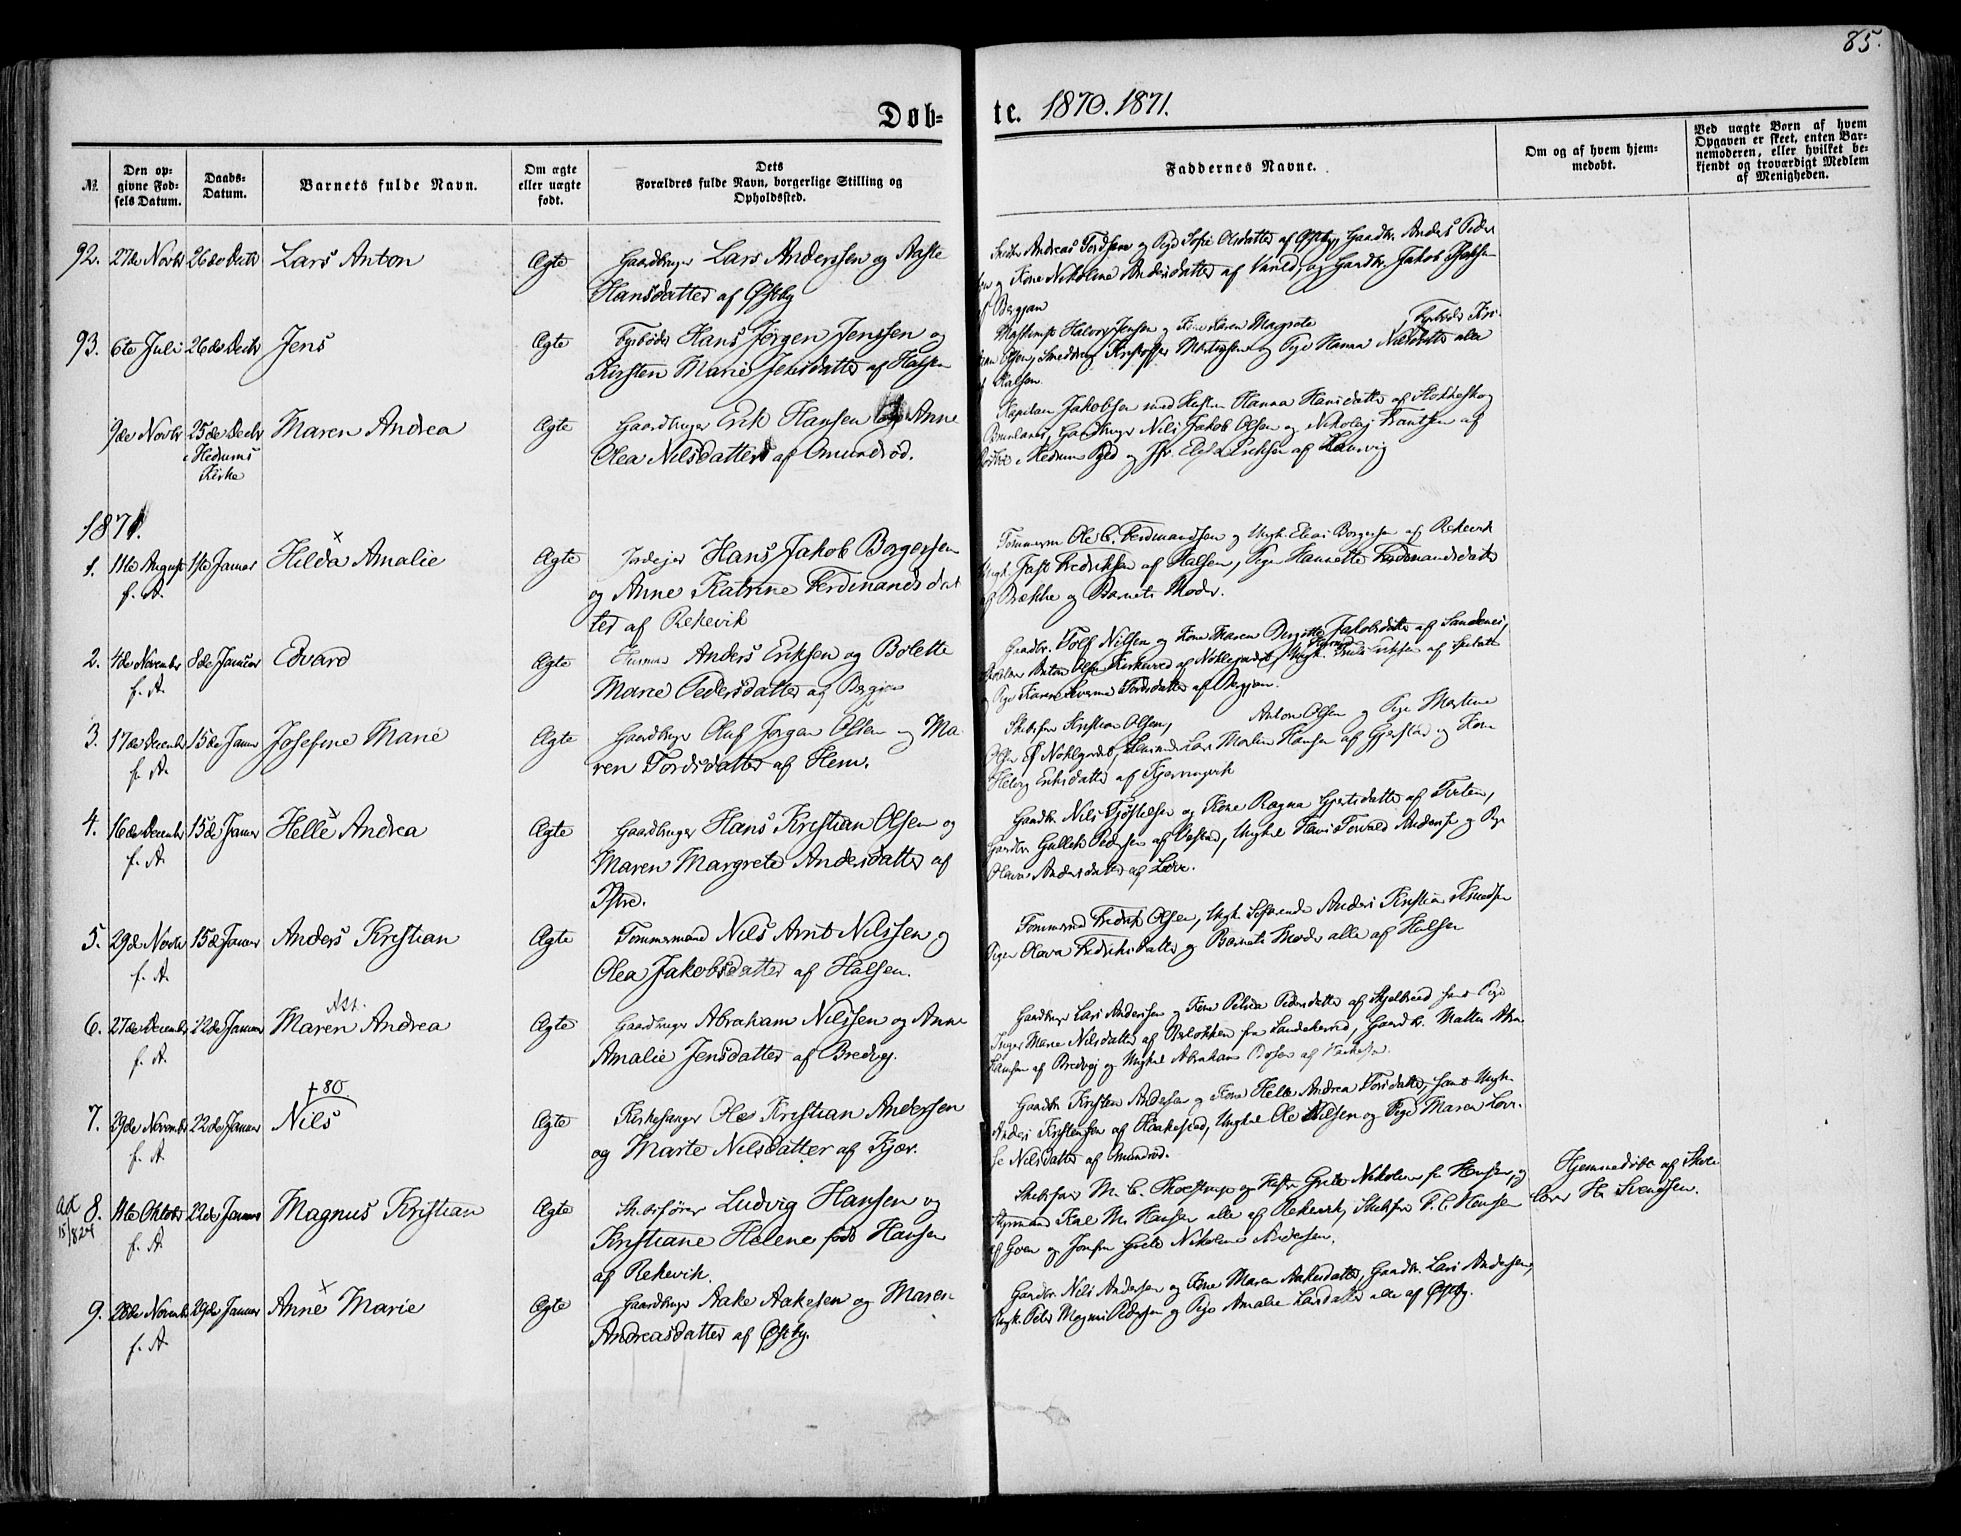 85.
Døb=
te. 1870. 1871.
№
Den op=
givne Fød=
sels Datum.
Daabs=
Datum.
Barnets fulde Navn.
Om ægte
eller uægte
født.
Dets
Forældres fulde Navn, borgerlige Stilling og
Opholdssted.
Faddernes Navne.
Om og af hvem hjem=
medøbt.
Ved uægte Børn af hvem
Opgaven er skeet, enten Bar=
nemoderen, eller hvilket be=
kjendt og troværdigt Medlem
af Menigheden.
92. 27de Novbr 26de Decbr Lars Anton Ægte Gaardbruger Lars Anderssen og Aaste
Hansdatter af Østby
Andreas Tordsen og Pige Sofie Olsdatter af Østby, Gaardbr. Anders Peder
og Kone Nikoline Andersdatter af Varild, og Gaardbr. Jakob
af Bergjan
93. 6te Juli 26de Decbr Jens Ægte Fyrbøder Hans Jørgen Jenssen og
Kirsten Marie Jensdatter af Halsen
Maskinist Halvor Jensen og Kone Karen Magrete Fyrbøder Kri-
Kristoffer Martinsen og Pige Hanna Nilsdatter alle
af Halsen.
9de Novbr 25de Decbr Maren Andrea Ægte Gaardbruger Erik Hansen og Anne
i Hedrums
Kirke
Olea Nilsdatter af Omundrød.
Kapitain Jakobsen med Hustru Hanna Hansdatter af Stokkeskog
Brunlanes, Gaardbruger Nils Jakob Olsen og Nikolaj Frantsen af
i Hedrum Pgd og Jfr. Eriksen af Laurvig
1871.
1. 11te August 1ste Januar Hilda Amalie Ægte Jordejer Hans Jakob Borgersen
f. A.
og Anne Katrine Ferdinandsdat
ter af Rekevik
Tømmerm Ole C. Ferdinandsen og Ungk. Elias Borgersen af Rekevik
Ungk. Fredriksen af Halsen, Pige Hannette Ferdinandsdatter
af Brække og Barnets Moder.
2. 4de November 8de Januar Edvard Ægte Anders Eriksen og Bolette
f. A.
Marie Pedersdatter af Bergjan
Gaardbr. Tolf Nilsen og Kone Karen Bergitte Jakobsdatter af Sandenes,
Anton Olsen af Nohlegaardet, Ungk. Eriksen af
og Pige Karen Tordsdatter af Bergjan.
3. 17de December 15de Januar Josefine Marie Ægte Gaardbruger Oluf Jørgen Olsen og Ma
f. A.
ren Tordsdatter af Hem.
Skibsfører Kristian Olsen, Anton Olsen og Pige Martine
Olsen af Nohlgaardet, Lars Martin Hansen af Gjerstad og Kone
Helvig Eriksdatter af Kjerringvik
4. 16de December 15de Januar Helle Andrea Ægte Gaardbruger Hans Kristian Olsen og
f. A.
Maren Margrete Andersdatter af
Istre.
Gaardbr. Nils Kjøstelsen og Kone Ragna Gjertsdatter af Tveten,
Gaardbr. Gullek Pedersen af Vestad, Ungkl Hans Torvald Anderse og Pige
Olava Andersdatter af Løve.
5. 29de Novbr 15de Januar Anders Kristian Ægte Tømmermand Nils Arnt Nilssen og
f. A.
Olea Jakobsdatter af Halsen.
Tømmermd Fredrik Olsen, Ungk. Søfarende Anders Kristian Knudsen
Pige Olava Fredriksdatter og Barnets Moder alle af Halsen
6. 27de December 22de Januar Maren Andrea Ægte Gaardbruger Abraham Nilssen og Anne
Att.
f. A.
Amalie Jensdatter af Bredvej.
Gaardbruger Lars Anderssen og Kone Pedersdatter af Skjelbred samt Pige
Inger Marie Nilsdatter af fra Sandeherred, Gaardbr. Matha
Hansen af Bredvej og Ungkl Abraham
7. 29de November 22de Januar Nils Ægte Kirkesanger Ole Kristian Andersen
+80
f. A.
og Marte Nilsdatter af Kjær.
Gaardbr Kristen Andersen og Kone Helle Andrea Torsdatter, samt Ungk.
Anders Kristensen af Haakestad, Ungkl Ole Nilsen og Pige Maren Lovi-
se Nilsdatter af Omundrød.
ad
15/8 24
8. 11te Oktober 22de Januar Magnus Kristian Ægte Skibsfører Ludvig Hansen og
f. A.
Kristiane Helene født Hansen
af Rekevik.
Skibsfører M. C. og Hustru Grete Nikoline født Hansen, og
Styrmand Karl M. Hansen alle af Rekevik, Skibsfører P. C. Hansen
af Goen og Jomfru Grete Nikoline Andersen.
Hjemmedøbt af Skole
lærer H. Svendsen.
9. 28de Novembr 29de Januar Anne Marie Ægte Gaardbruger Aake Aakesen og Maren
f. A.
Andreasdatter af Østby.
Gaardbr. Nils Andersen og Kone Maren Aakesdatter, Gaardbr. Lars Andersen,
Ungk. Peter Magnus Pedersen og Pige Amalie Larsdatter alle af Østby.